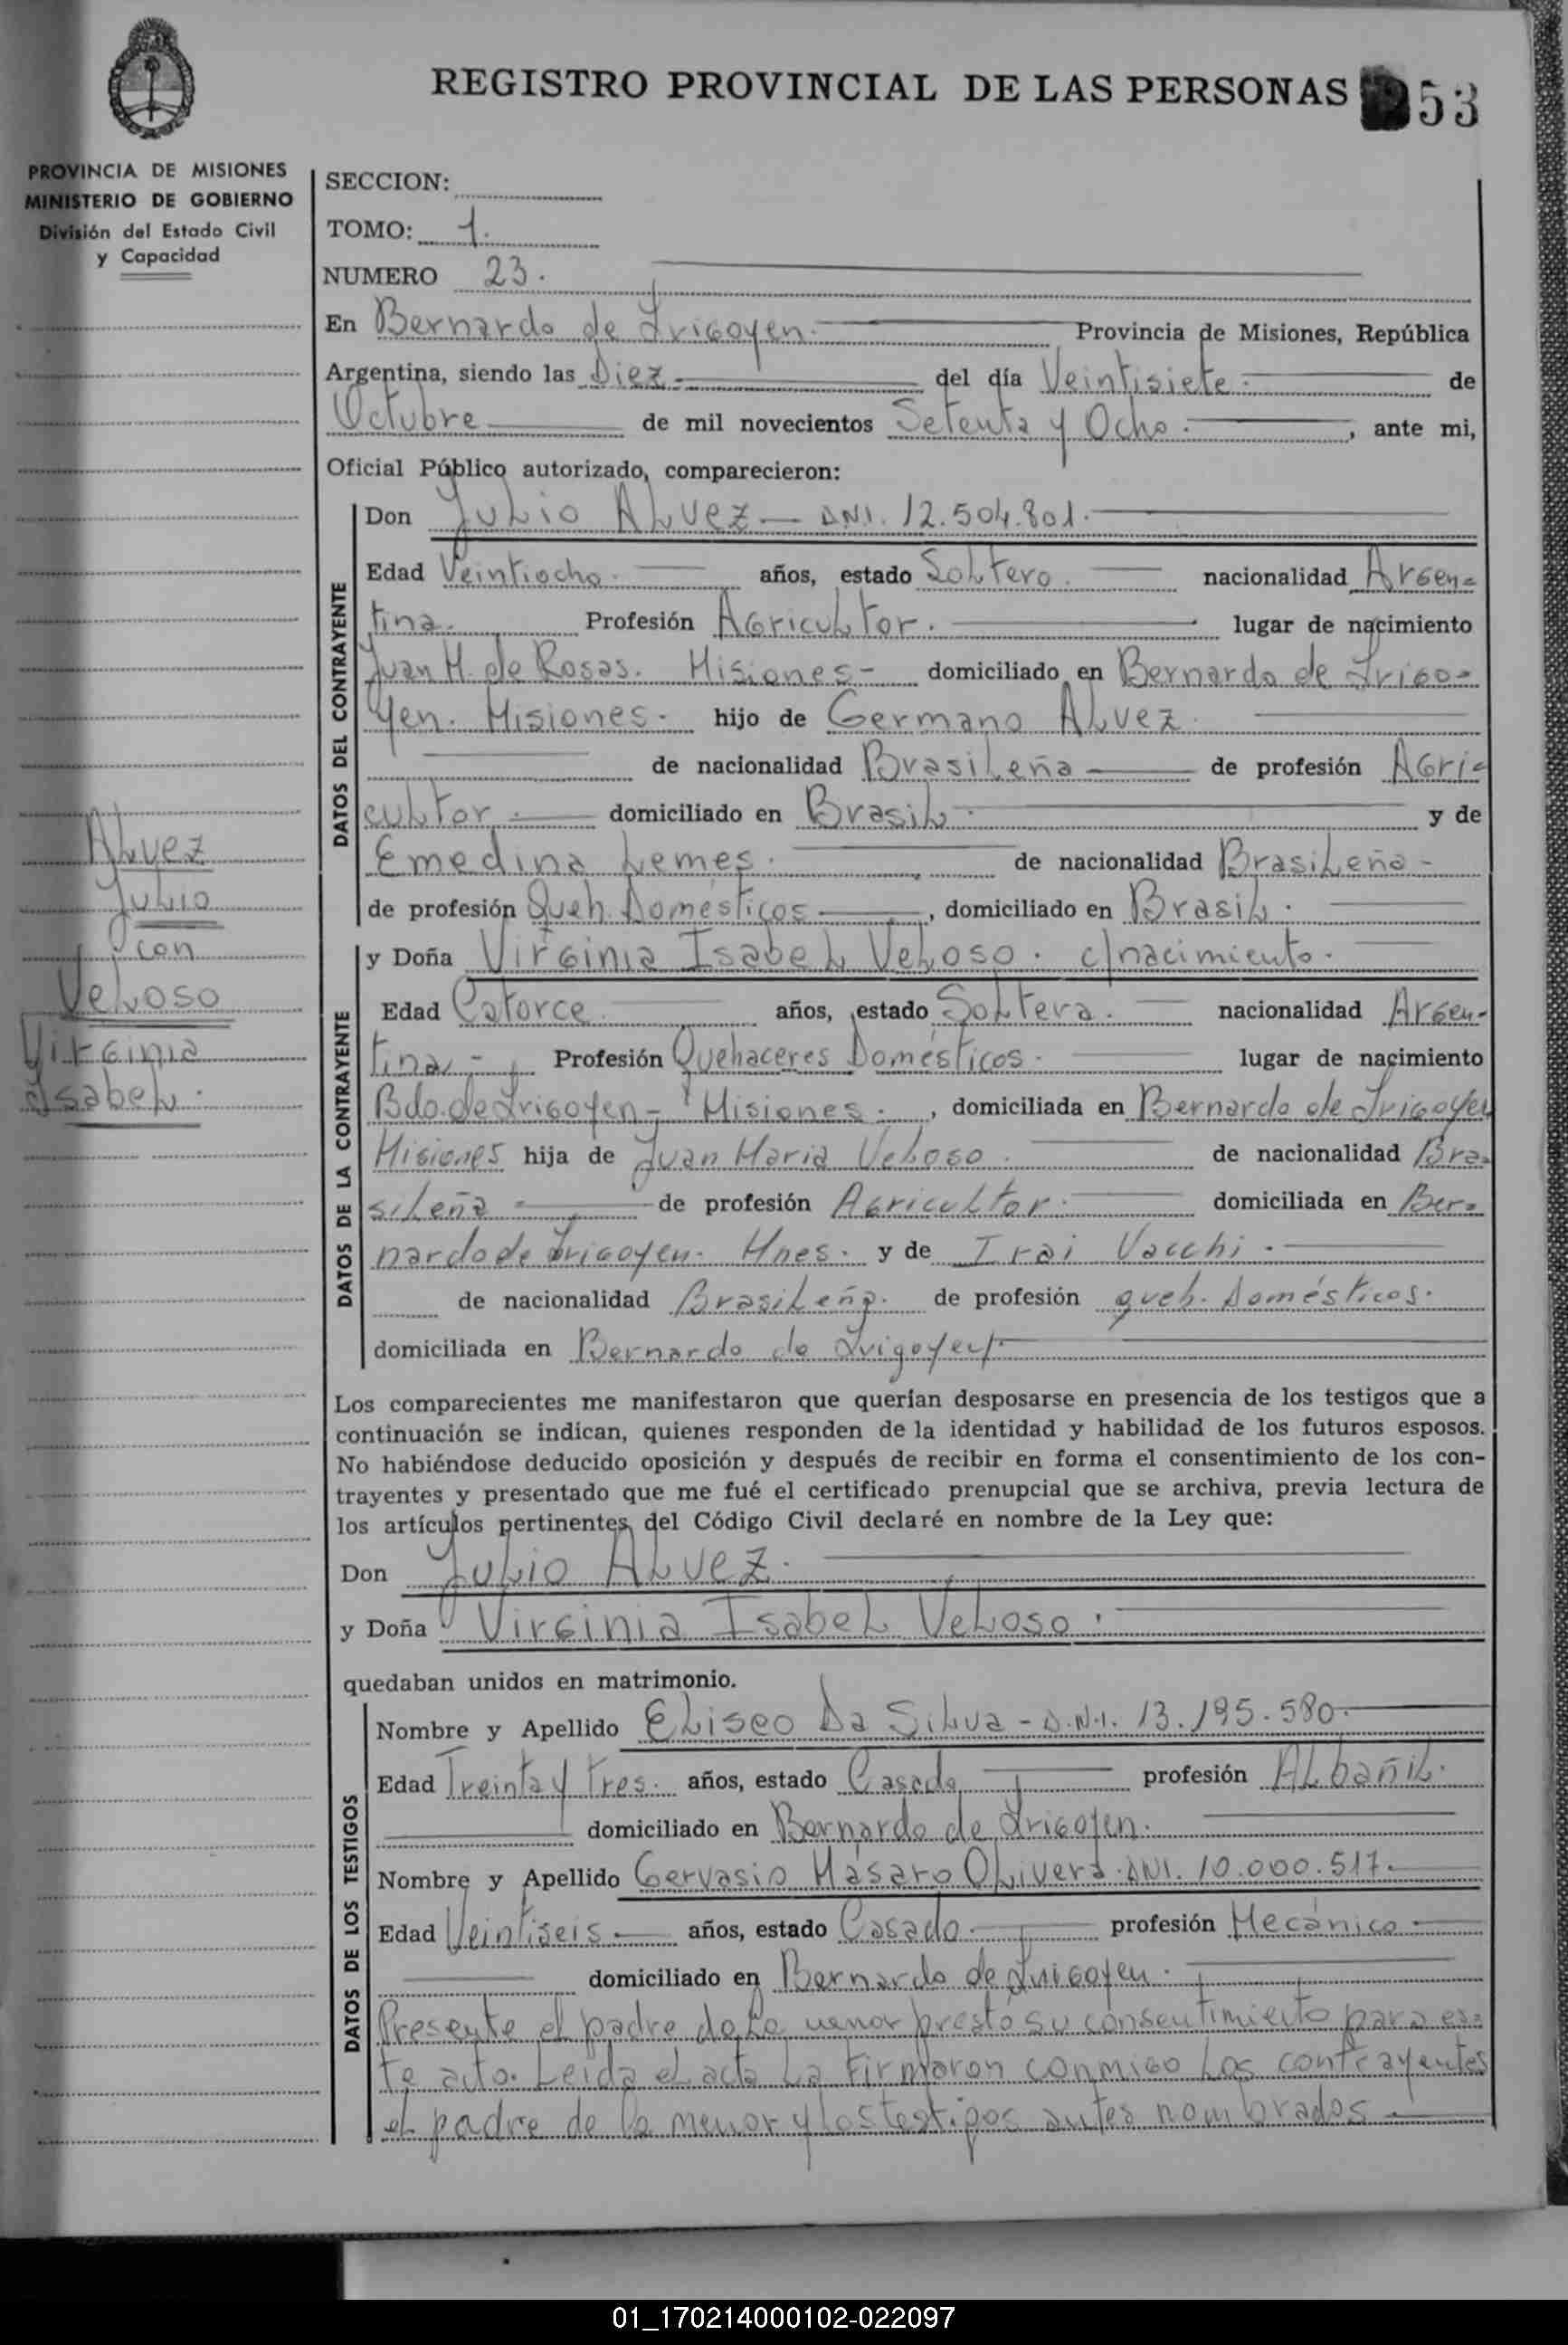 REGISTRO PROVINCIAL DE LAS PERSONAS 53
PROVINCIA DE MISIONES
MINISTERIO DE GOBIERNO
División del Estado Civil
y Capacidad
SECCION:
TOMO: 1.
NUMERO 23.
En Bernardo de Irigoyen. Provincia de Misiones, República
Argentina, siendo las Diez del día Veintisiete. de
Octubre de mil novecientos Setenta y Ocho., ante mi,
Oficial Público autorizado, comparecieron:
DATOS DEL CONTRAYENTE
Don Julio Alvez - DNI. 12.504.801.
Edad Veintiocho. años, estado Soltero. nacionalidad Argen-
tina. Profesión Agricultor. lugar de nacimiento
Juan M. de Rosas. Misiones- domiciliado en Bernardo de Irigo-
yen. Misiones. hijo de Germano Alvez.
de nacionalidad Brasileña de profesión Agri-
cultor. domiciliado en Brasil. y de
Emedina Lemes. de nacionalidad Brasileña-
de profesión Queh. Domésticos, domiciliado en Brasil.
DATOS DE LA CONTRAYENTE
y Doña Virginia Isabel Veloso. c/nacimiento.
Edad Catorce años, estado Soltera. nacionalidad Argen-
tina,- Profesión Quehaceres Domésticos. lugar de nacimiento
Bdo. de Irigoyen- Misiones., domiciliada en Bernardo de Irigoyen
Misiones hija de Juan Maria Veloso. de nacionalidad Bra-
sileña- de profesión Agricultor. domiciliada en Ber-
nardo de Irigoyen. Mnes. y de Irai Vacchi.
de nacionalidad Brasileña. de profesión queh. Domésticos.
domiciliada en Bernardo de Irigoyen.
Alvez
Julio
con
Veloso
Virginia
Isabel.
Los comparecientes me manifestaron que querían desposarse en presencia de los testigos que a
continuación se indican, quienes responden de la identidad y habilidad de los futuros esposos.
No habiéndose deducido oposición y después de recibir en forma el consentimiento de los con-
trayentes y presentado que me fué el certificado prenupcial que se archiva, previa lectura de
los artículos pertinentes del Código Civil declaré en nombre de la Ley que:
Don Julio Alvez.
y Doña Virginia Isabel Veloso.
quedaban unidos en matrimonio.
DATOS DE LOS TESTIGOS
Nombre y Apellido Eliseo Da Silva - D.N.I. 13.195.580.
Edad Treinta y Tres. años, estado Casado profesión Albañil.
domiciliado en Bernardo de Irigoyen.
Nombre y Apellido Gervasio Másaro Olivera. DNI. 10.000.517.
Edad Veintiseis años, estado Casado. profesión Mecánico
domiciliado en Bernardo de Irigoyen.
Presente el padre de la menor prestó su consentimiento para es-
te acto. Leida el acta la firmaron conmigo los contrayentes
el padre de la menor y los testigos antes nombrados.
01_170214000102-022097